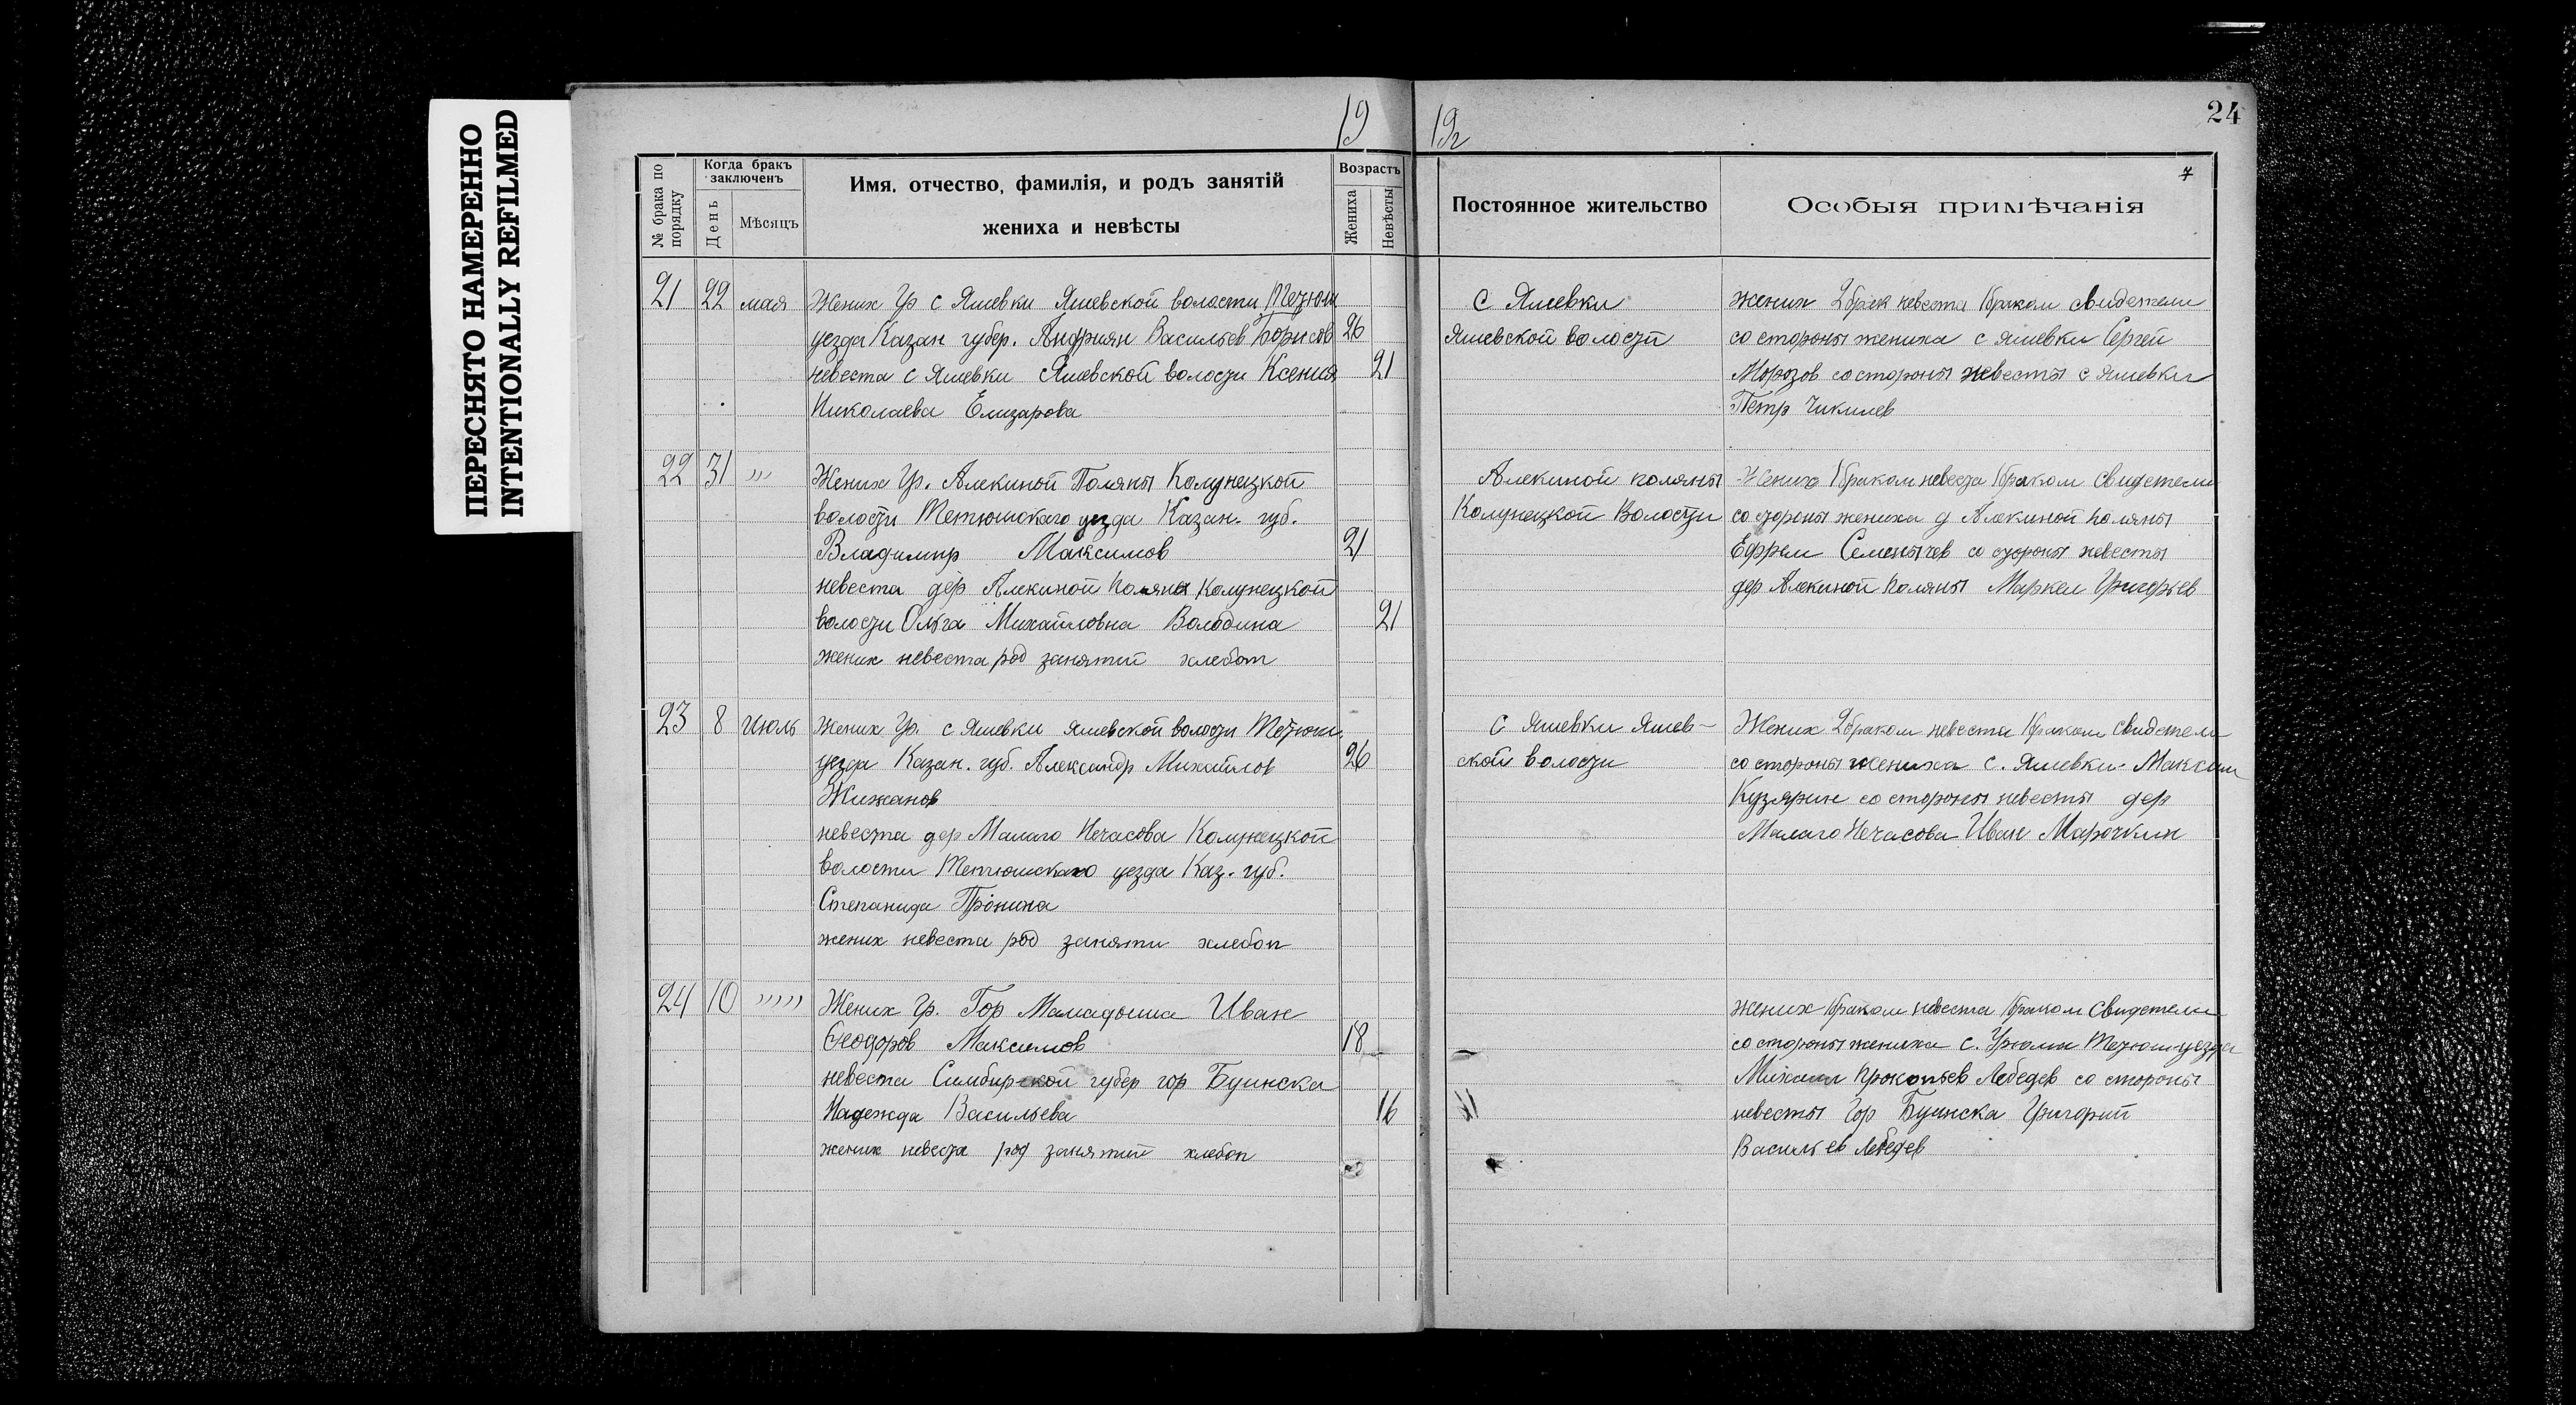 ПЕРЕСНЯТО НАМЕРЕННО
INTENTIONALLY REFILMED
19
19г
24
№ брака по порядку
Когда бракъ заключенъ
День
Мѣсяцъ
Имя, отчество, фамилія, и родъ занятій
жениха и невѣсты
Возрастъ
Жениха
Невѣсты
Постоянное жительство
Особыя примѣчанія
7
21 22 мая Жених Гр с Яшевки Яшевской воласти Тетюш
уезда Казан губер. Андриян Васильев Борисов 26
невеста с Яшевки Яшевской волости Ксения 21
Николаева Елизарова
с Яшевки
Яшевской волости
жених 2 брак невеста 1 браком свидетели
со стороны жениха с яшевки Сергей
Морозов со стороны невесты с яшевки
Петр Чикилев
22 31 ,,,
Жених Гр. Алекиной Поляны Колунецкой
волости Тетюшскаго уезда Казан. губ.
Владимир Максимов 21
невеста дер Алекиной поляна Колунецкой
волости Ольга Михайловна Володина 21
жених невеста род занятий хлебоп
Алекиной поляны
Колунецкой Волости
Жених 1 браком невеста 1 браком свидетели
со стороны жениха д Алекиной поляны
Ефрем Семенычев со стороны невесты
дер Алекиной поляны Маркел Григорьев
23 8 Июль Жених Гр. с Яшевки яшевской волости Тетюш
уезда Казан. губ. Александр Михайлов 26
Жижанов
невеста дер Малаго Нечасова Колунецкой
волости Тетюшскаго уезда Каз. губ.
Степанида Пронина
жених невеста род заняти хлебоп
с Яшевки Яшев-
ской волости
Жених 2 браком невеста 1 браком свидетели
со стороны жениха с. Яшевки Максим
Кузярин со стороны невесты дер
Малаго Нечасова Иван Марочкин
24 10 ,,,,,
Жених Гр. Гор Мамадыша Иван
Феодоров Максимов 18
невеста Симбирской губер гор Буинска
Надежда Васильева 16
жених невеста род занятий хлебоп
жених 1 браком невеста 1 браком свидетели
со стороны жениха с. Урюми Тетюш уезда
Михаил Прокопьев Лебедев со стороны
невесты Гор Буинска Григорий
Васильев Лебедев